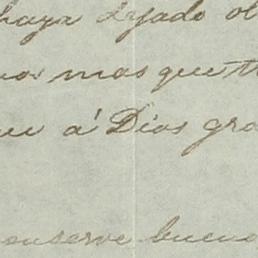 haya dejado ol
os mas que t
ue á Dios gra
onserve bueno